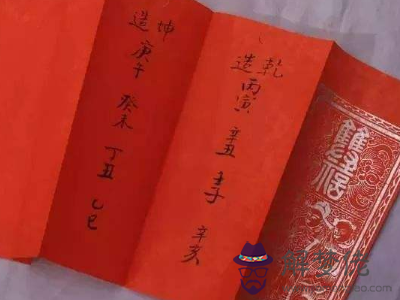 乾造 丙寅 辛丑 壬子 辛亥
坤造 庚午 癸未 丁丑 乙巳
解梦佬